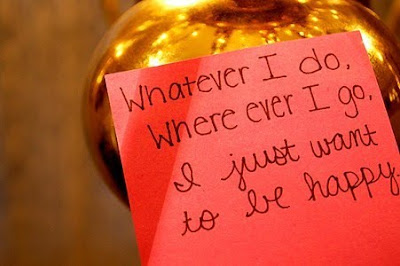 Whatever I do,
Where ever I go,
I just want
to be happy.